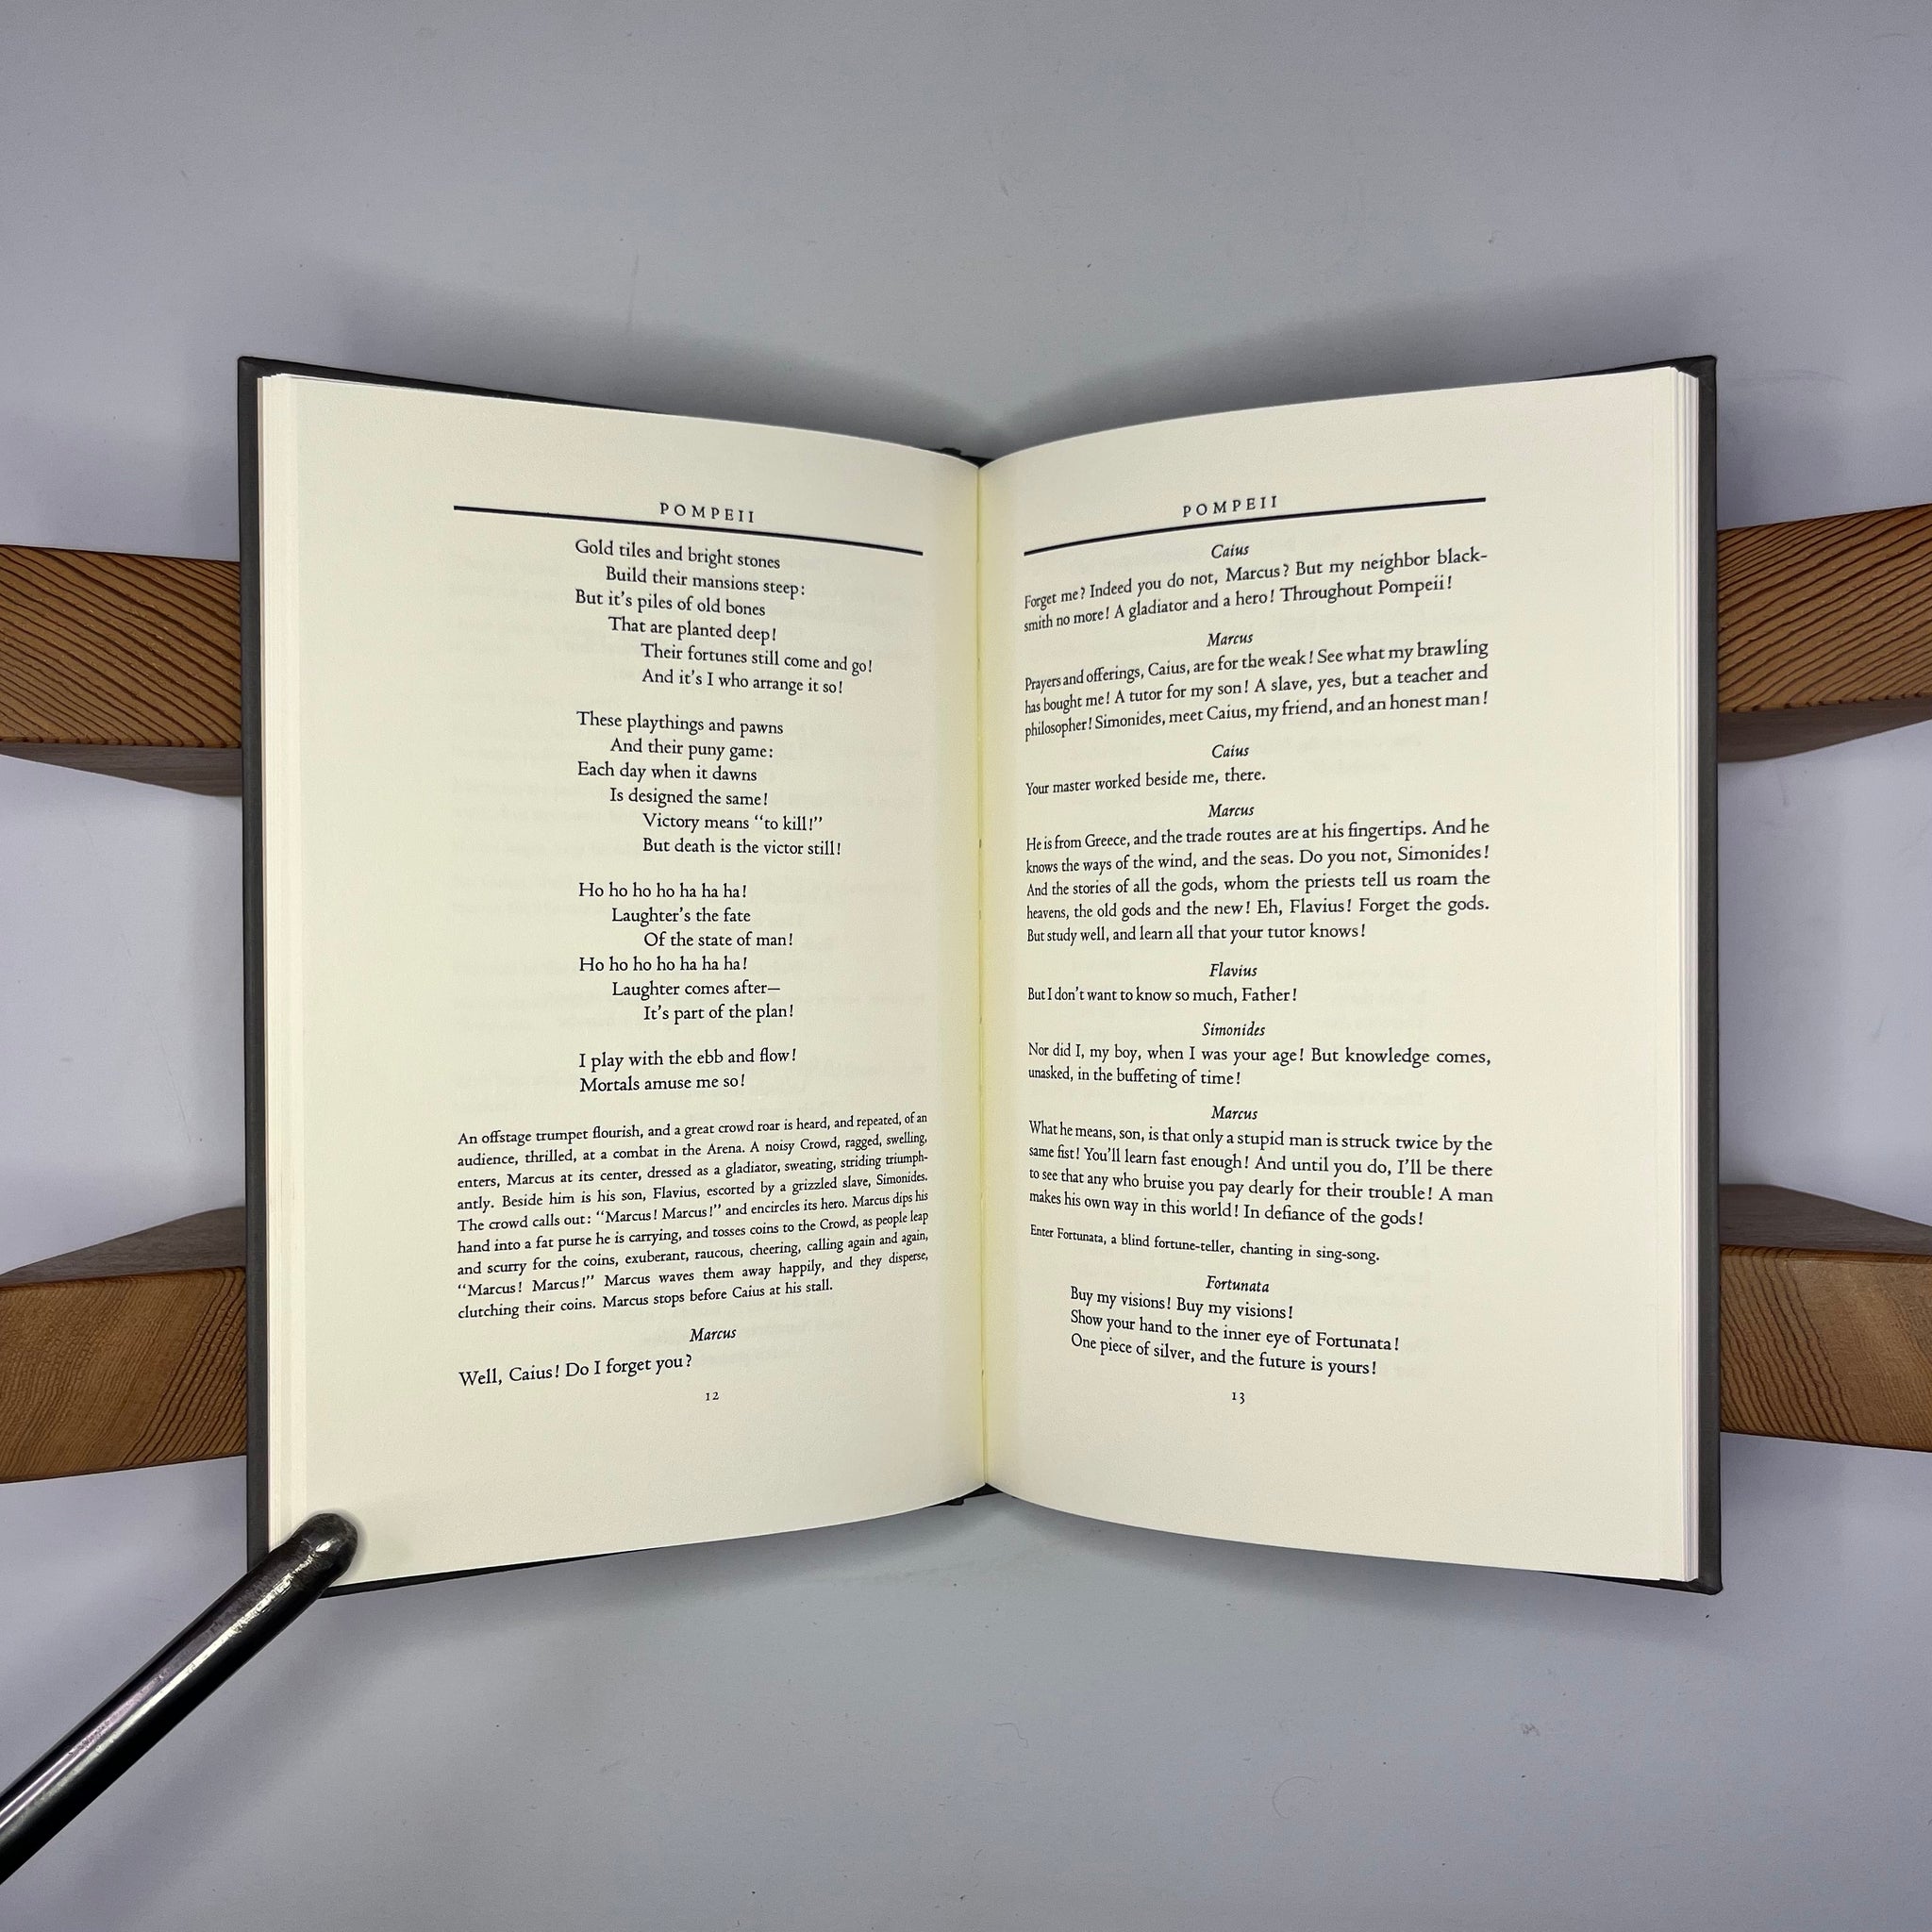 POMPEII
Gold tiles and bright stones
Build their mansions steep:
But it's piles of old bones
That are planted deep!
Their fortunes still come and go!
And it's I who arrange it so!
These playthings and pawns
And their puny game:
Each day when it dawns
Is designed the same!
Victory means “to kill!”
But death is the victor still!
Ho ho ho ho ha ha ha!
Laughter's the fate
Of the state of man!
Ho ho ho ho ha ha ha!
Laughter comes after—
It's part of the plan!
I play with the ebb and flow!
Mortals amuse me so!
An offstage trumpet flourish, and a great crowd roar is heard, and repeated, of an
audience, thrilled, at a combat in the Arena. A noisy Crowd, ragged, swelling,
enters, Marcus at its center, dressed as a gladiator, sweating, striding triumph-
antly. Beside him is his son, Flavius, escorted by a grizzled slave, Simonides.
The crowd calls out: “Marcus! Marcus!” and encircles its hero. Marcus dips his
hand into a fat purse he is carrying, and tosses coins to the Crowd, as people leap
and scurry for the coins, exuberant, raucous, cheering, calling again and again,
“Marcus! Marcus!” Marcus waves them away happily, and they disperse,
clutching their coins. Marcus stops before Caius at his stall.
Marcus
Well, Caius! Do I forget you?
12
POMPEII
Caius
Forget me? Indeed you do not, Marcus? But my neighbor black-
smith no more! A gladiator and a hero! Throughout Pompeii!
Marcus
Prayers and offerings, Caius, are for the weak! See what my brawling
has bought me! A tutor for my son! A slave, yes, but a teacher and
philosopher! Simonides, meet Caius, my friend, and an honest man!
Caius
Your master worked beside me, there.
Marcus
He is from Greece, and the trade routes are at his fingertips. And he
knows the ways of the wind, and the seas. Do you not, Simonides!
And the stories of all the gods, whom the priests tell us roam the
heavens, the old gods and the new! Eh, Flavius! Forget the gods.
But study well, and learn all that your tutor knows!
Flavius
But I don't want to know so much, Father!
Simonides
Nor did I, my boy, when I was your age! But knowledge comes,
unasked, in the buffeting of time!
Marcus
What he means, son, is that only a stupid man is struck twice by the
same fist! You'll learn fast enough! And until you do, I'll be there
to see that any who bruise you pay dearly for their trouble! A man
makes his own way in this world! In defiance of the gods!
Enter Fortunata, a blind fortune-teller, chanting in sing-song.
Fortunata
Buy my visions! Buy my visions!
Show your hand to the inner eye of Fortunata!
One piece of silver, and the future is yours!
13